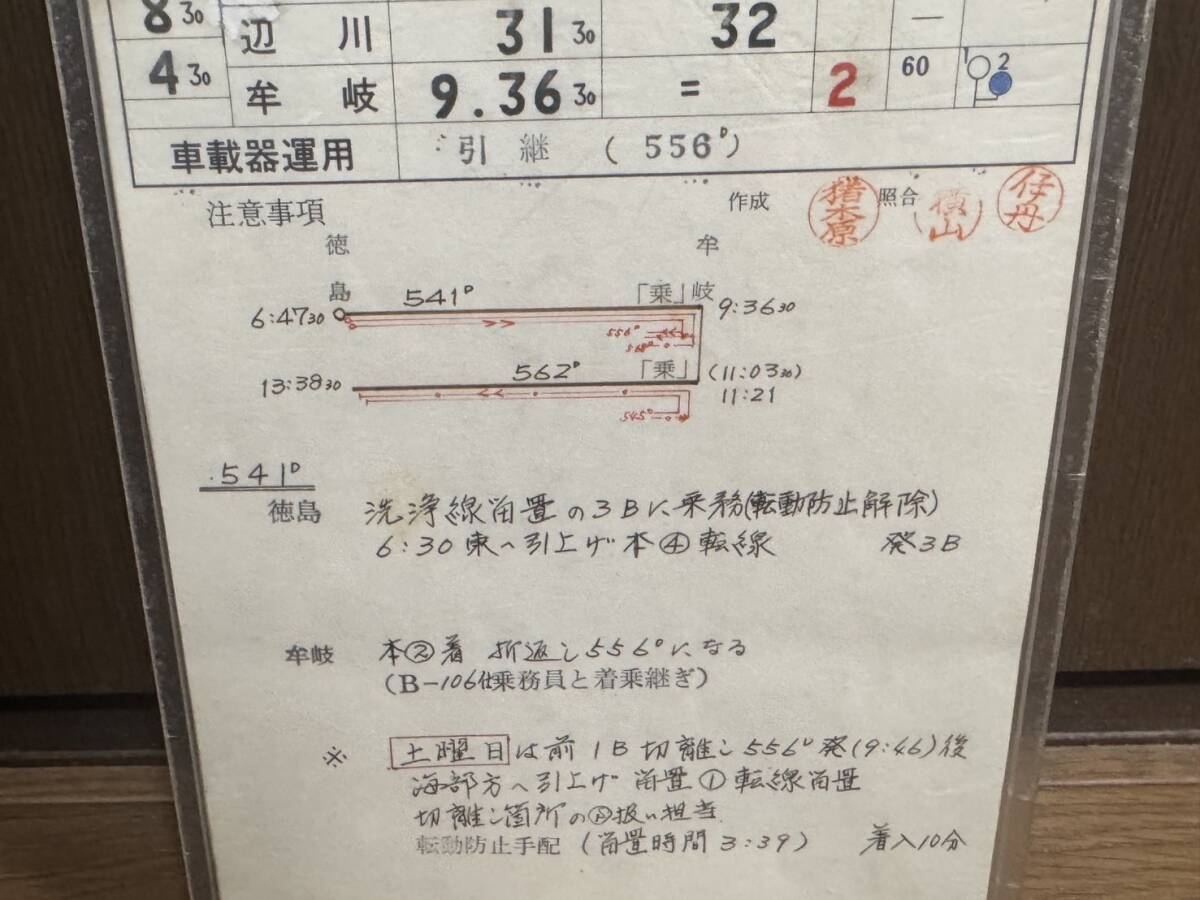 8 30 辺川 31 30 32 ―
4 30 牟岐 9.36 30 = 2 60 1 2
車載器運用 引継 (556D)
注意事項 作成 猪木原 照合 横山 仔母
徳島 牟岐
6:47 30 541D 「乗」 9:36 30
556D
568D
13:38 30 562D 「乗」 (11:03 30)
11:21
545D
541D
徳島 洗浄線留置の3Bに乗務(転動防止解除)
6:30東へ引上げ本④転線 発3B
牟岐 本②着 折返し556Dになる
(B-106仕乗務員と着乗継ぎ)
※ 土曜日は前1B切離し556D発(9:46)後
海部方へ引上げ 留置①転線留置
切離し箇所の 扱い担当
転動防止手配 (留置時間3:39) 着入10分